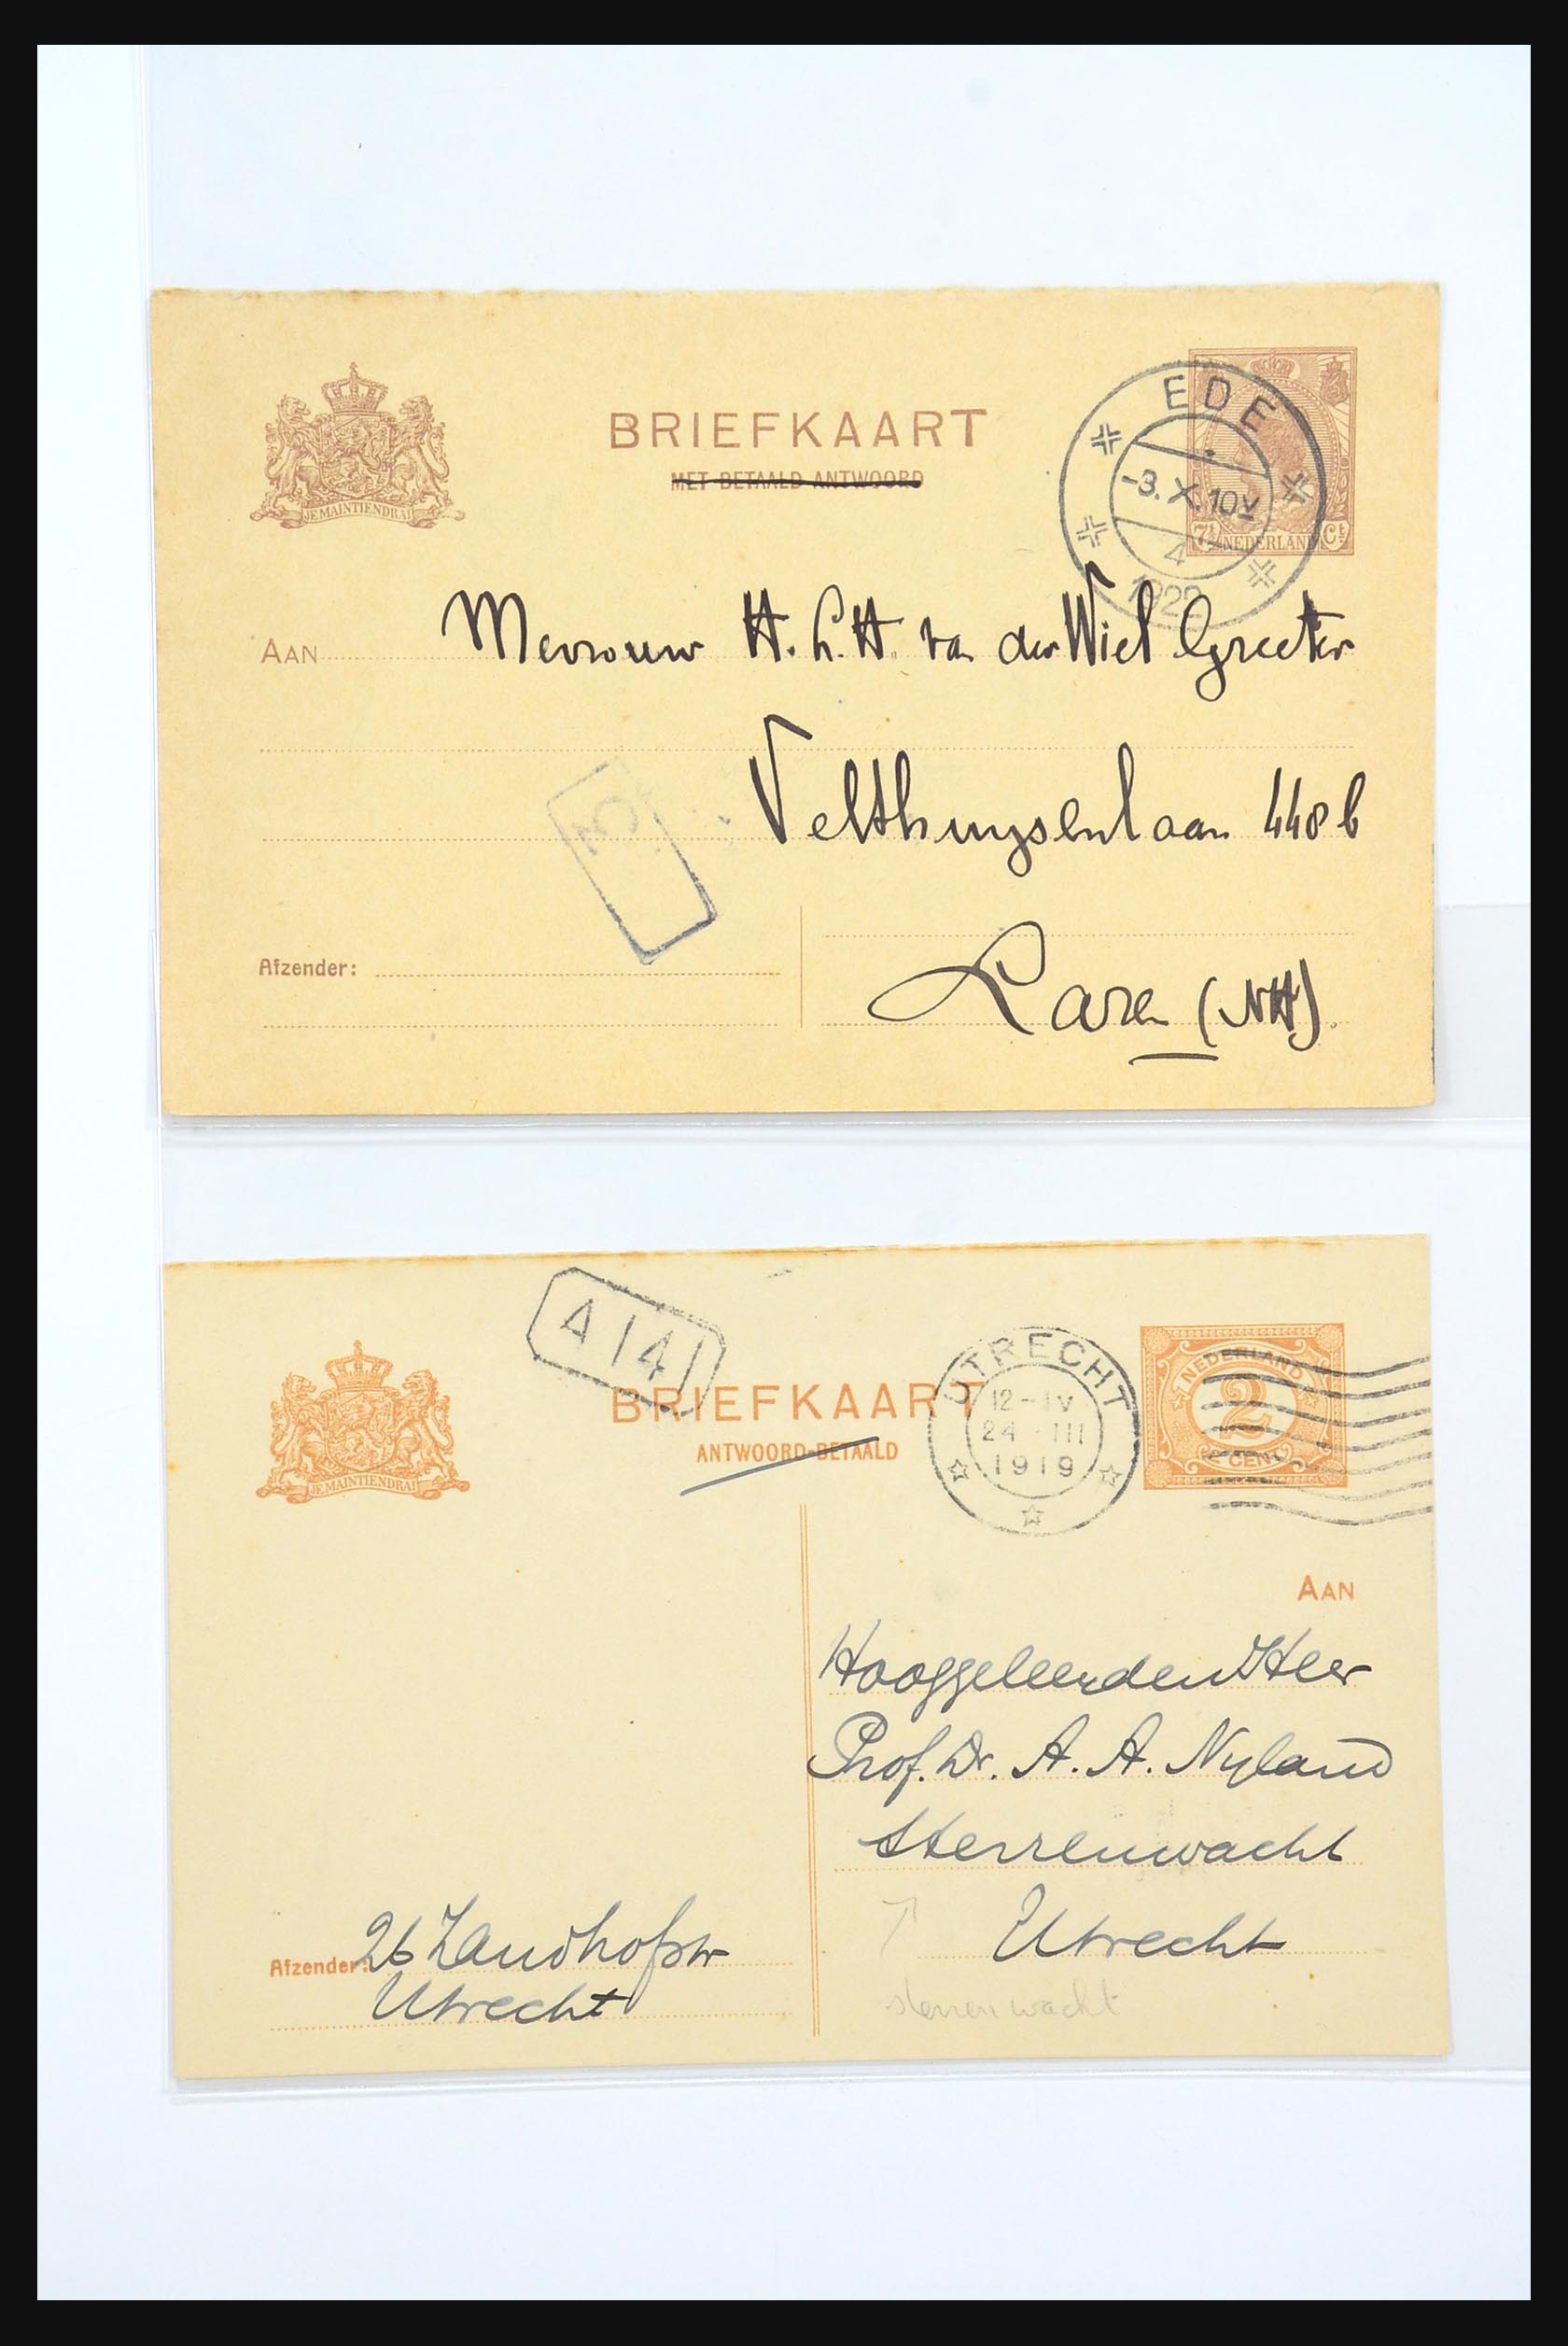 BRIEFKAART
MET BETAALD ANTWOORD
JE MAINTIENDRAI
EDE
-3.X.10V
4
1922
7½ NEDERLAND Ct
AAN Mevrouw H. L. H. van der Wiel Greeter
Velthuysenlaan 448b
Afzender:
Laren (NH).
A 14
BRIEFKAART
ANTWOORD-BETAALD
JE MAINTIENDRAI
UTRECHT
12-IV
24 III
1919
NEDERLAND
2
CENT
AAN
Hooggeleerden Heer
Prof. Dr. A. A. Nyland
Sterrenwacht
Utrecht
Afzender: 26 Zandhofstr
Utrecht
sterrenwacht